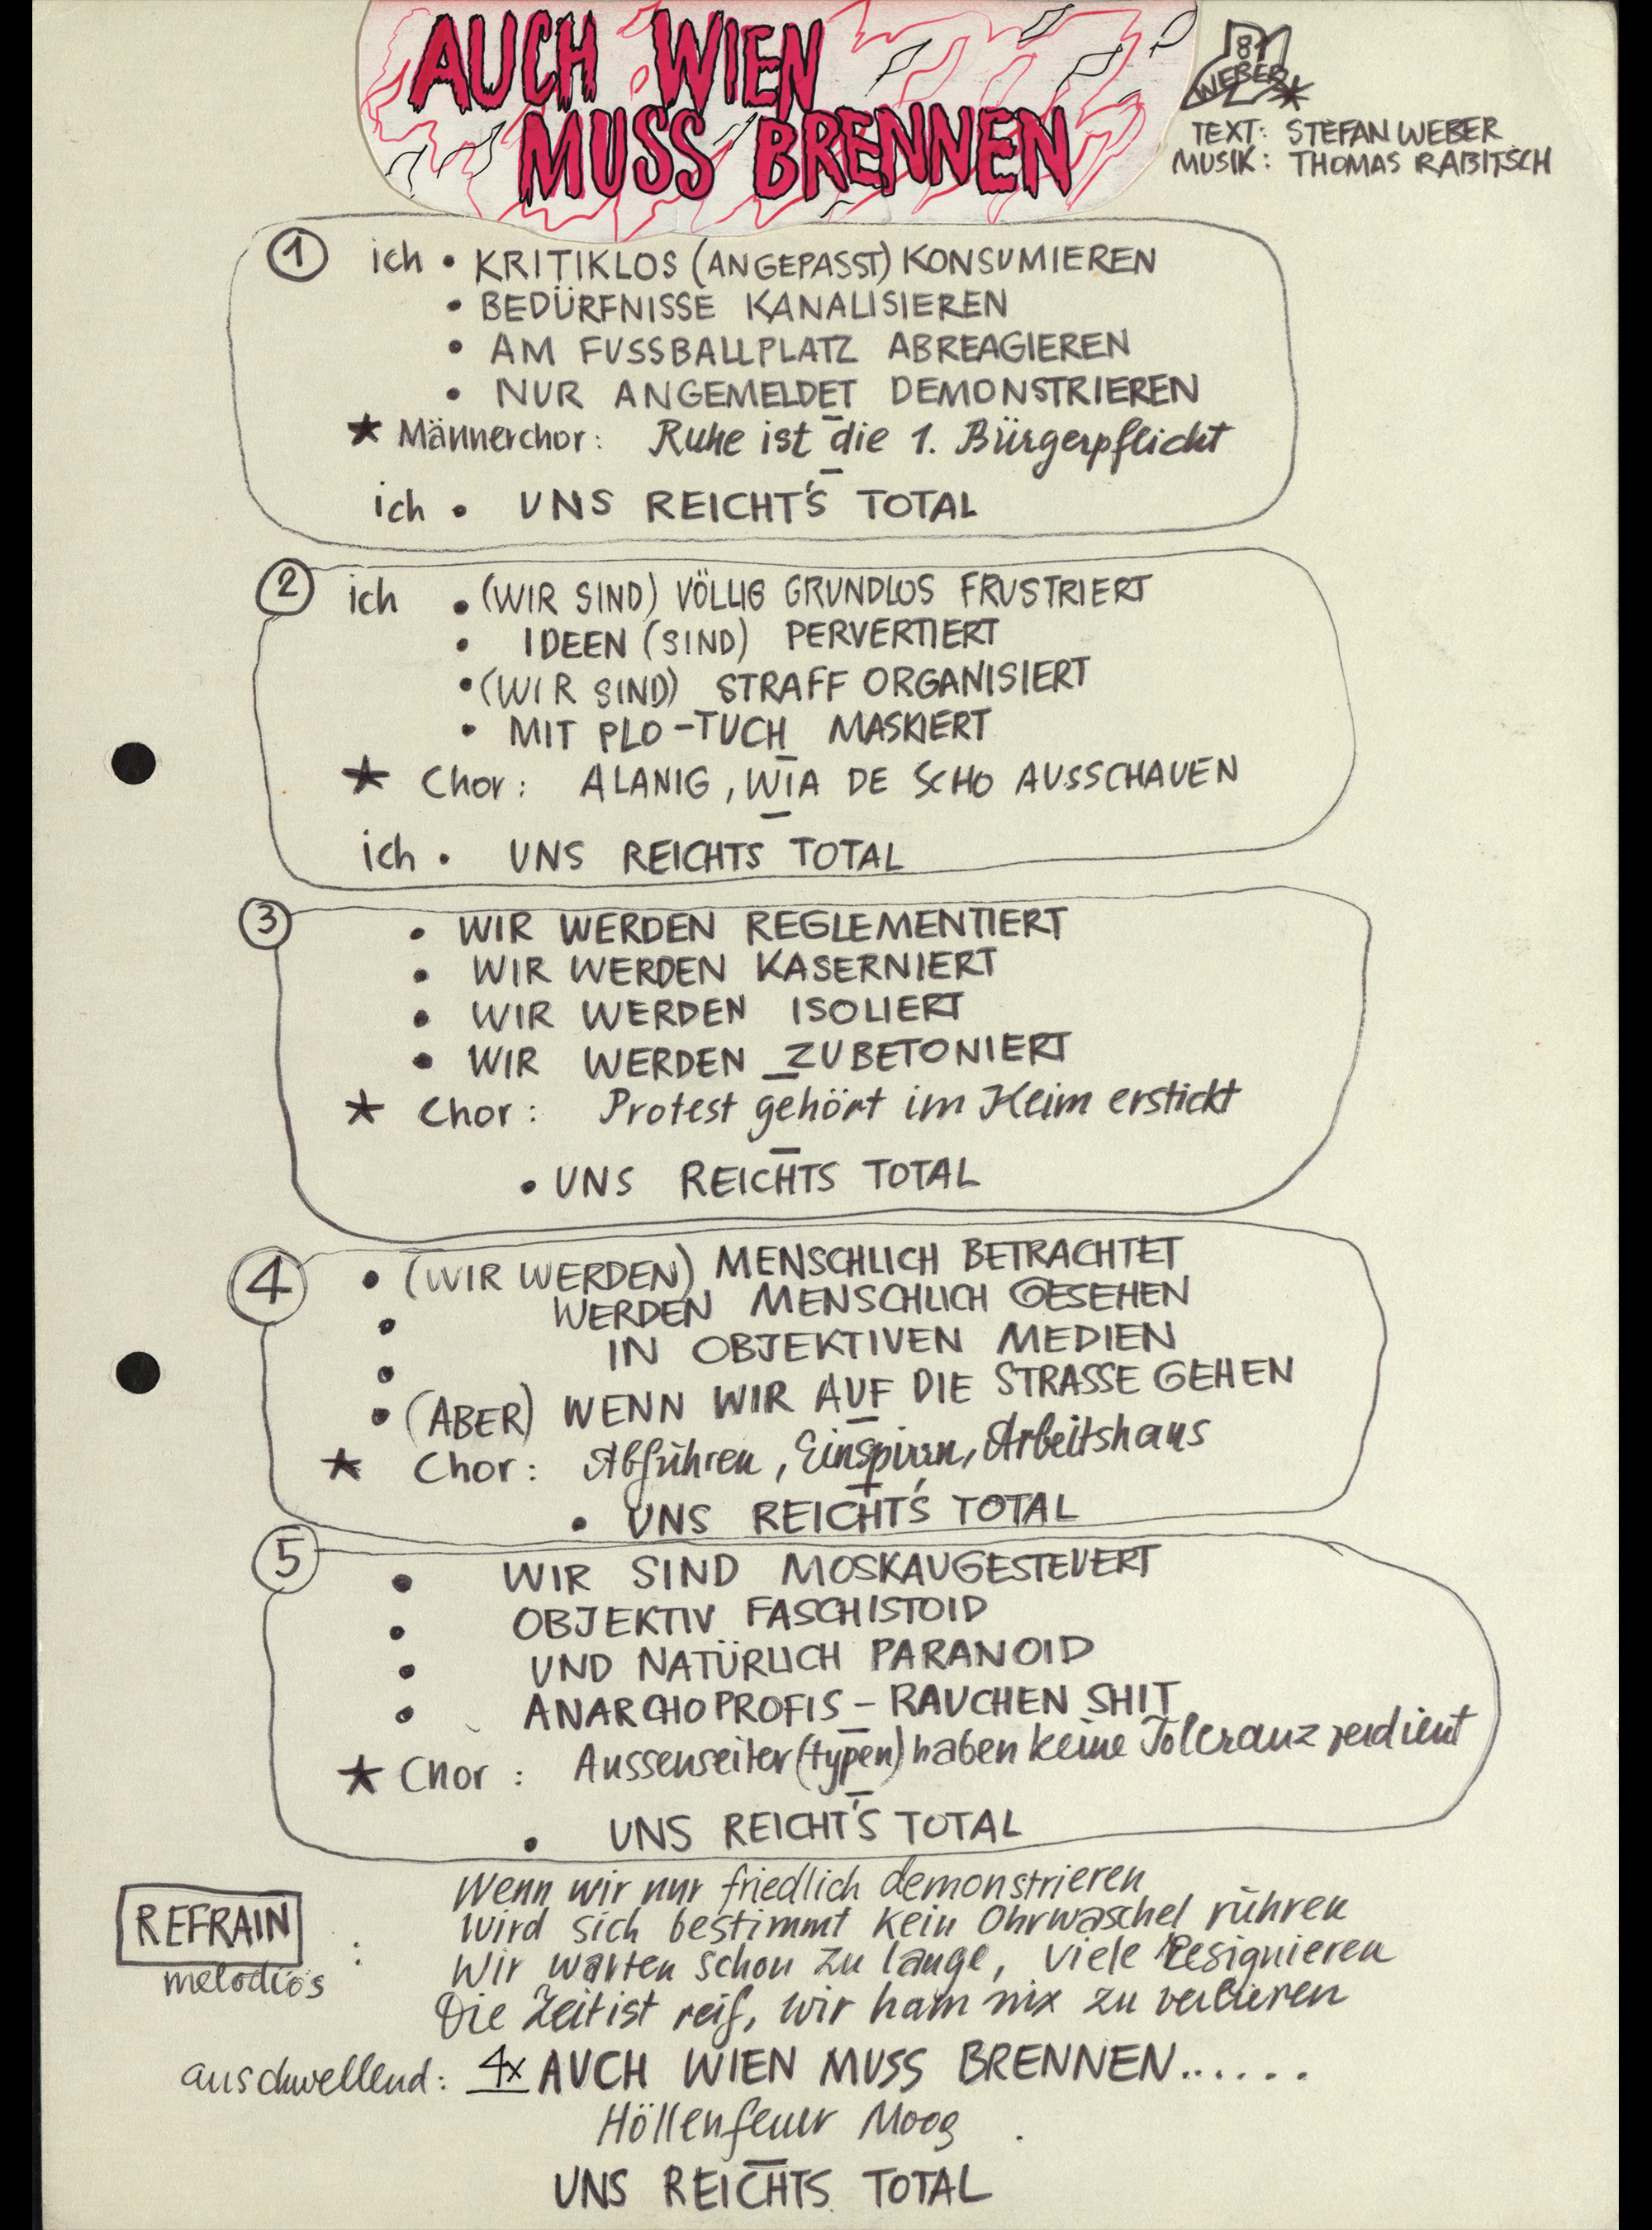 AUCH WIEN
MUSS BRENNEN
81
WEBER*
TEXT: STEFAN WEBER
MUSIK: THOMAS RABITSCH
1 ich • KRITIKLOS (ANGEPASST) KONSUMIEREN
• BEDÜRFNISSE KANALISIEREN
• AM FUSSBALLPLATZ ABREAGIEREN
• NUR ANGEMELDET DEMONSTRIEREN
* Männerchor: Ruhe ist die 1. Bürgerpflicht
ich • UNS REICHT'S TOTAL
2 ich • (WIR SIND) VÖLLIG GRUNDLOS FRUSTRIERT
• IDEEN (SIND) PERVERTIERT
• (WIR SIND) STRAFF ORGANISIERT
• MIT PLO-TUCH MASKIERT
* Chor: ALANIG, WIA DE SCHO AUSSCHAUEN
ich • UNS REICHTS TOTAL
3 • WIR WERDEN REGLEMENTIERT
• WIR WERDEN KASERNIERT
• WIR WERDEN ISOLIERT
• WIR WERDEN ZUBETONIERT
* Chor: Protest gehört im Keim erstickt
• UNS REICHTS TOTAL
4 • (WIR WERDEN) MENSCHLICH BETRACHTET
• WERDEN MENSCHLICH GESEHEN
• IN OBJEKTIVEN MEDIEN
• (ABER) WENN WIR AUF DIE STRASSE GEHEN
* Chor: Abführen, Einspirrn, Arbeitshaus
• UNS REICHT'S TOTAL
5 • WIR SIND MOSKAUGESTEUERT
• OBJEKTIV FASCHISTOID
• UND NATÜRLICH PARANOID
• ANARCHOPROFIS – RAUCHEN SHIT
* Chor: Aussenseiter(typen) haben keine Toleranz verdient
• UNS REICHT'S TOTAL
Wenn wir nur friedlich demonstrieren
REFRAIN : wird sich bestimmt kein Ohrwaschel rühren
melodiös Wir warten schon zu lange, viele Resignieren
Die Zeit ist reif, wir ham nix zu verlieren
anschwellend: 4x AUCH WIEN MUSS BRENNEN......
Höllenfeuer Moog .
UNS REICHTS TOTAL